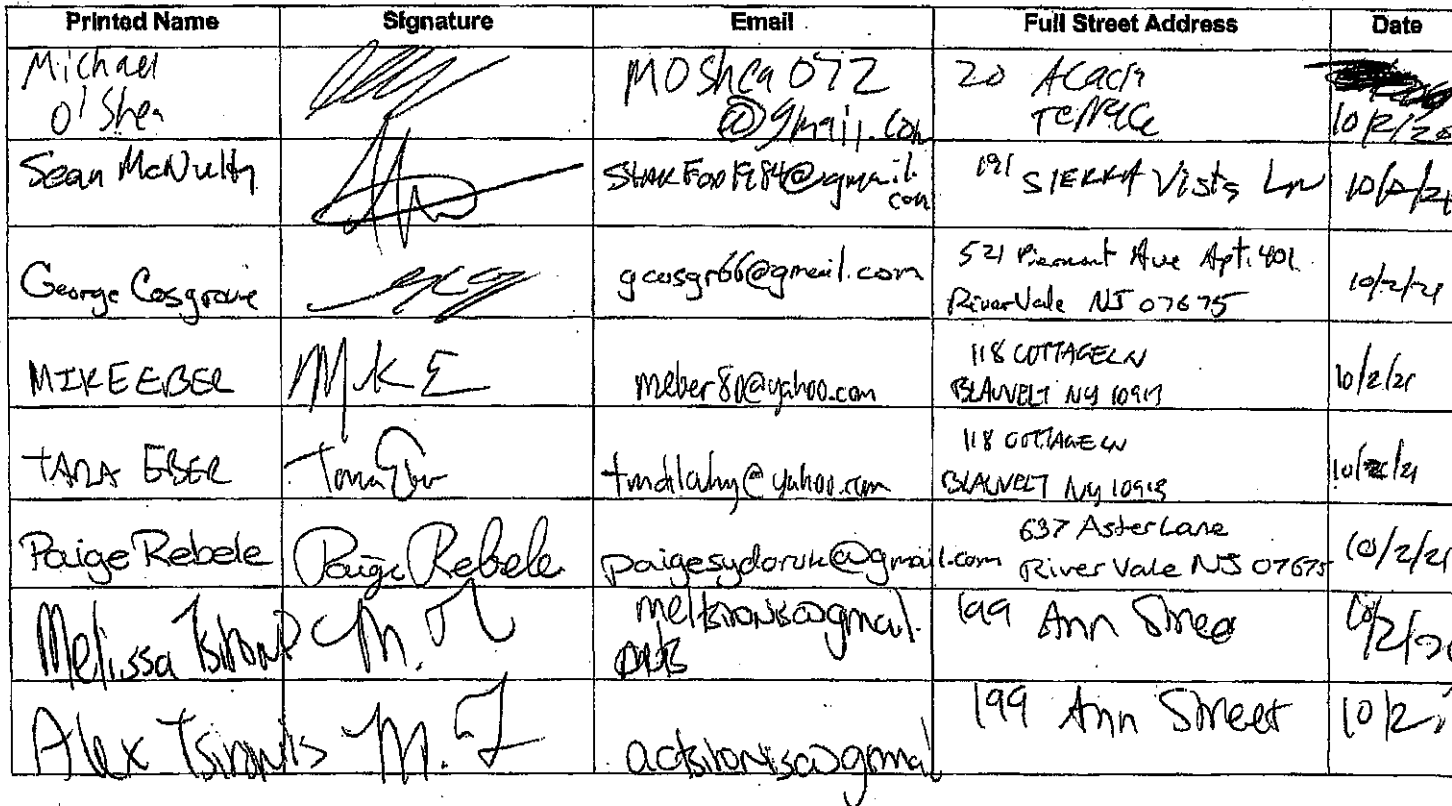 Printed Name Signature Email Full Street Address Date
Michael
O'Shea
MOShea072
@gmail.com
20 Acacia
Terrace
Sean McNulty
StarFox1984@gmail.
com
191 SIERRA Vista Ln
George Cosgrove
gcosgr66@gmail.com
521 Piermont Ave Apt. 401
River Vale NJ 07675
10/2/21
MIKE EBER
MKE
meber80@yahoo.com
118 COTTAGE LN
BLAUVELT NY 10913
10/2/21
TARA EBER
@yahoo.com
118 COTTAGE LN
BLAUVELT NY 10913
Paige Rebele
Paige Rebele
paigesydoruk@gmail.com
637 Aster Lane
River Vale NJ 07675
10/2/21
Melissa
M. T
meltsironis@gmail.
199 Ann Stree
Alex Tsironis
M. T
actsironis@gmai
199 Ann Street
10/2